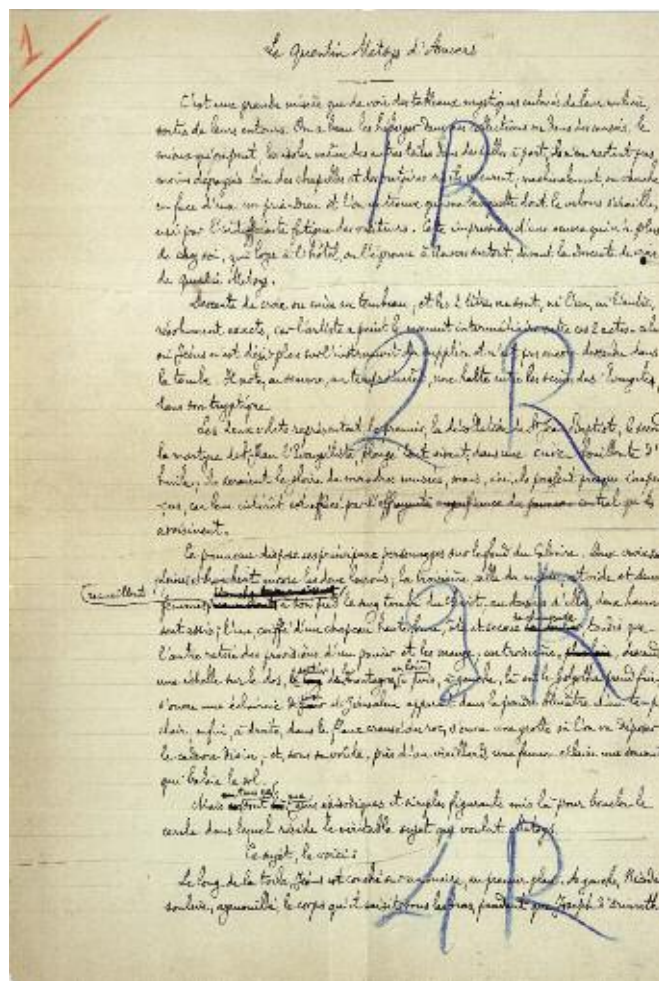 1
Le Quentin Metsys d'Anvers
C'est une grande misère que de voir des tableaux mystiques enlevés de leur milieu,
sortis de leurs entours. On a beau les héberger dans des collections ou dans des musées, le
mieux qu'on peut, les isoler même des autres toiles dans des salles à part, ils n'en restent pas
moins dépaysés loin des chapelles et des oratoires
en face d'eux un prie-Dieu et l'on ne trouve qu'une banquette dont le velours s'éraille,
usé par l'indifférente fatigue des visiteurs. Cette impression d'une œuvre qui n'a plus
de chez soi, qui loge à l'hôtel, on l'éprouve à Anvers surtout, devant la Descente de croix
de Quentin Metsys.
1R
Descente de croix ou mise au tombeau, et les 2 titres ne sont, ni l'un, ni l'autre,
résolument exacts, car l'artiste a peint le moment intermédiaire entre ces 2 actions, celui
où Jésus n'est déjà plus sur l'instrument du supplice et n'est pas encore descendu dans
la tombe. Il note, en somme, un temps d'arrêt, une halte entre les scènes des Evangiles,
dans son tryptique.
2R
Les deux volets représentant, le premier, la décollation de St Jean Baptiste, le second
le martyre de St Jean l'Evangéliste, plongé tout vivant, dans une cuve bouillante d'
huile; ils seraient la gloire de moindres musées, mais, ici, ils passent presque inaper-
çus, car leur intérêt est effacé par l' du panneau central qu'ils
avoisinent.
Ce panneau dispose ses principaux personnages sur le fond du Calvaire. Deux croix
la troisième, celle du milieu, est vide et deux
recueillent
femmes à son pied le sang tombé du Christ, au dessous d'elles, deux hommes
sont assis; l'un coiffé d'un chapeau haut de forme, tandis que
l'autre retire des provisions d'un panier et les mange, un troisième, descend
une échelle sur le dos, puis, à gauche, là où le Golgotha prend fin
s'ouvre une éclaircie et Jérusalem apparaît dans la
clair, enfin, à droite, dans le flanc creusé du roc, s'ouvre une grotte où l'on va déposer
le cadavre divin, et, sous sa voûte, près d'un vieillard, une femme éclaire une
qui balaie le sol.
3R
Mais ce sont épisodiques et simples figurants mis là pour boucler le
cercle dans lequel réside le véritable sujet que voulut Metsys.
Ce sujet, le voici:
Le long de la toile, Jésus est couché sur un suaire, au premier plan. A gauche, Nicodème
soulève, agenouillé, le corps qu'il saisit sous les bras, pendant que Joseph d'Arimathie
4R